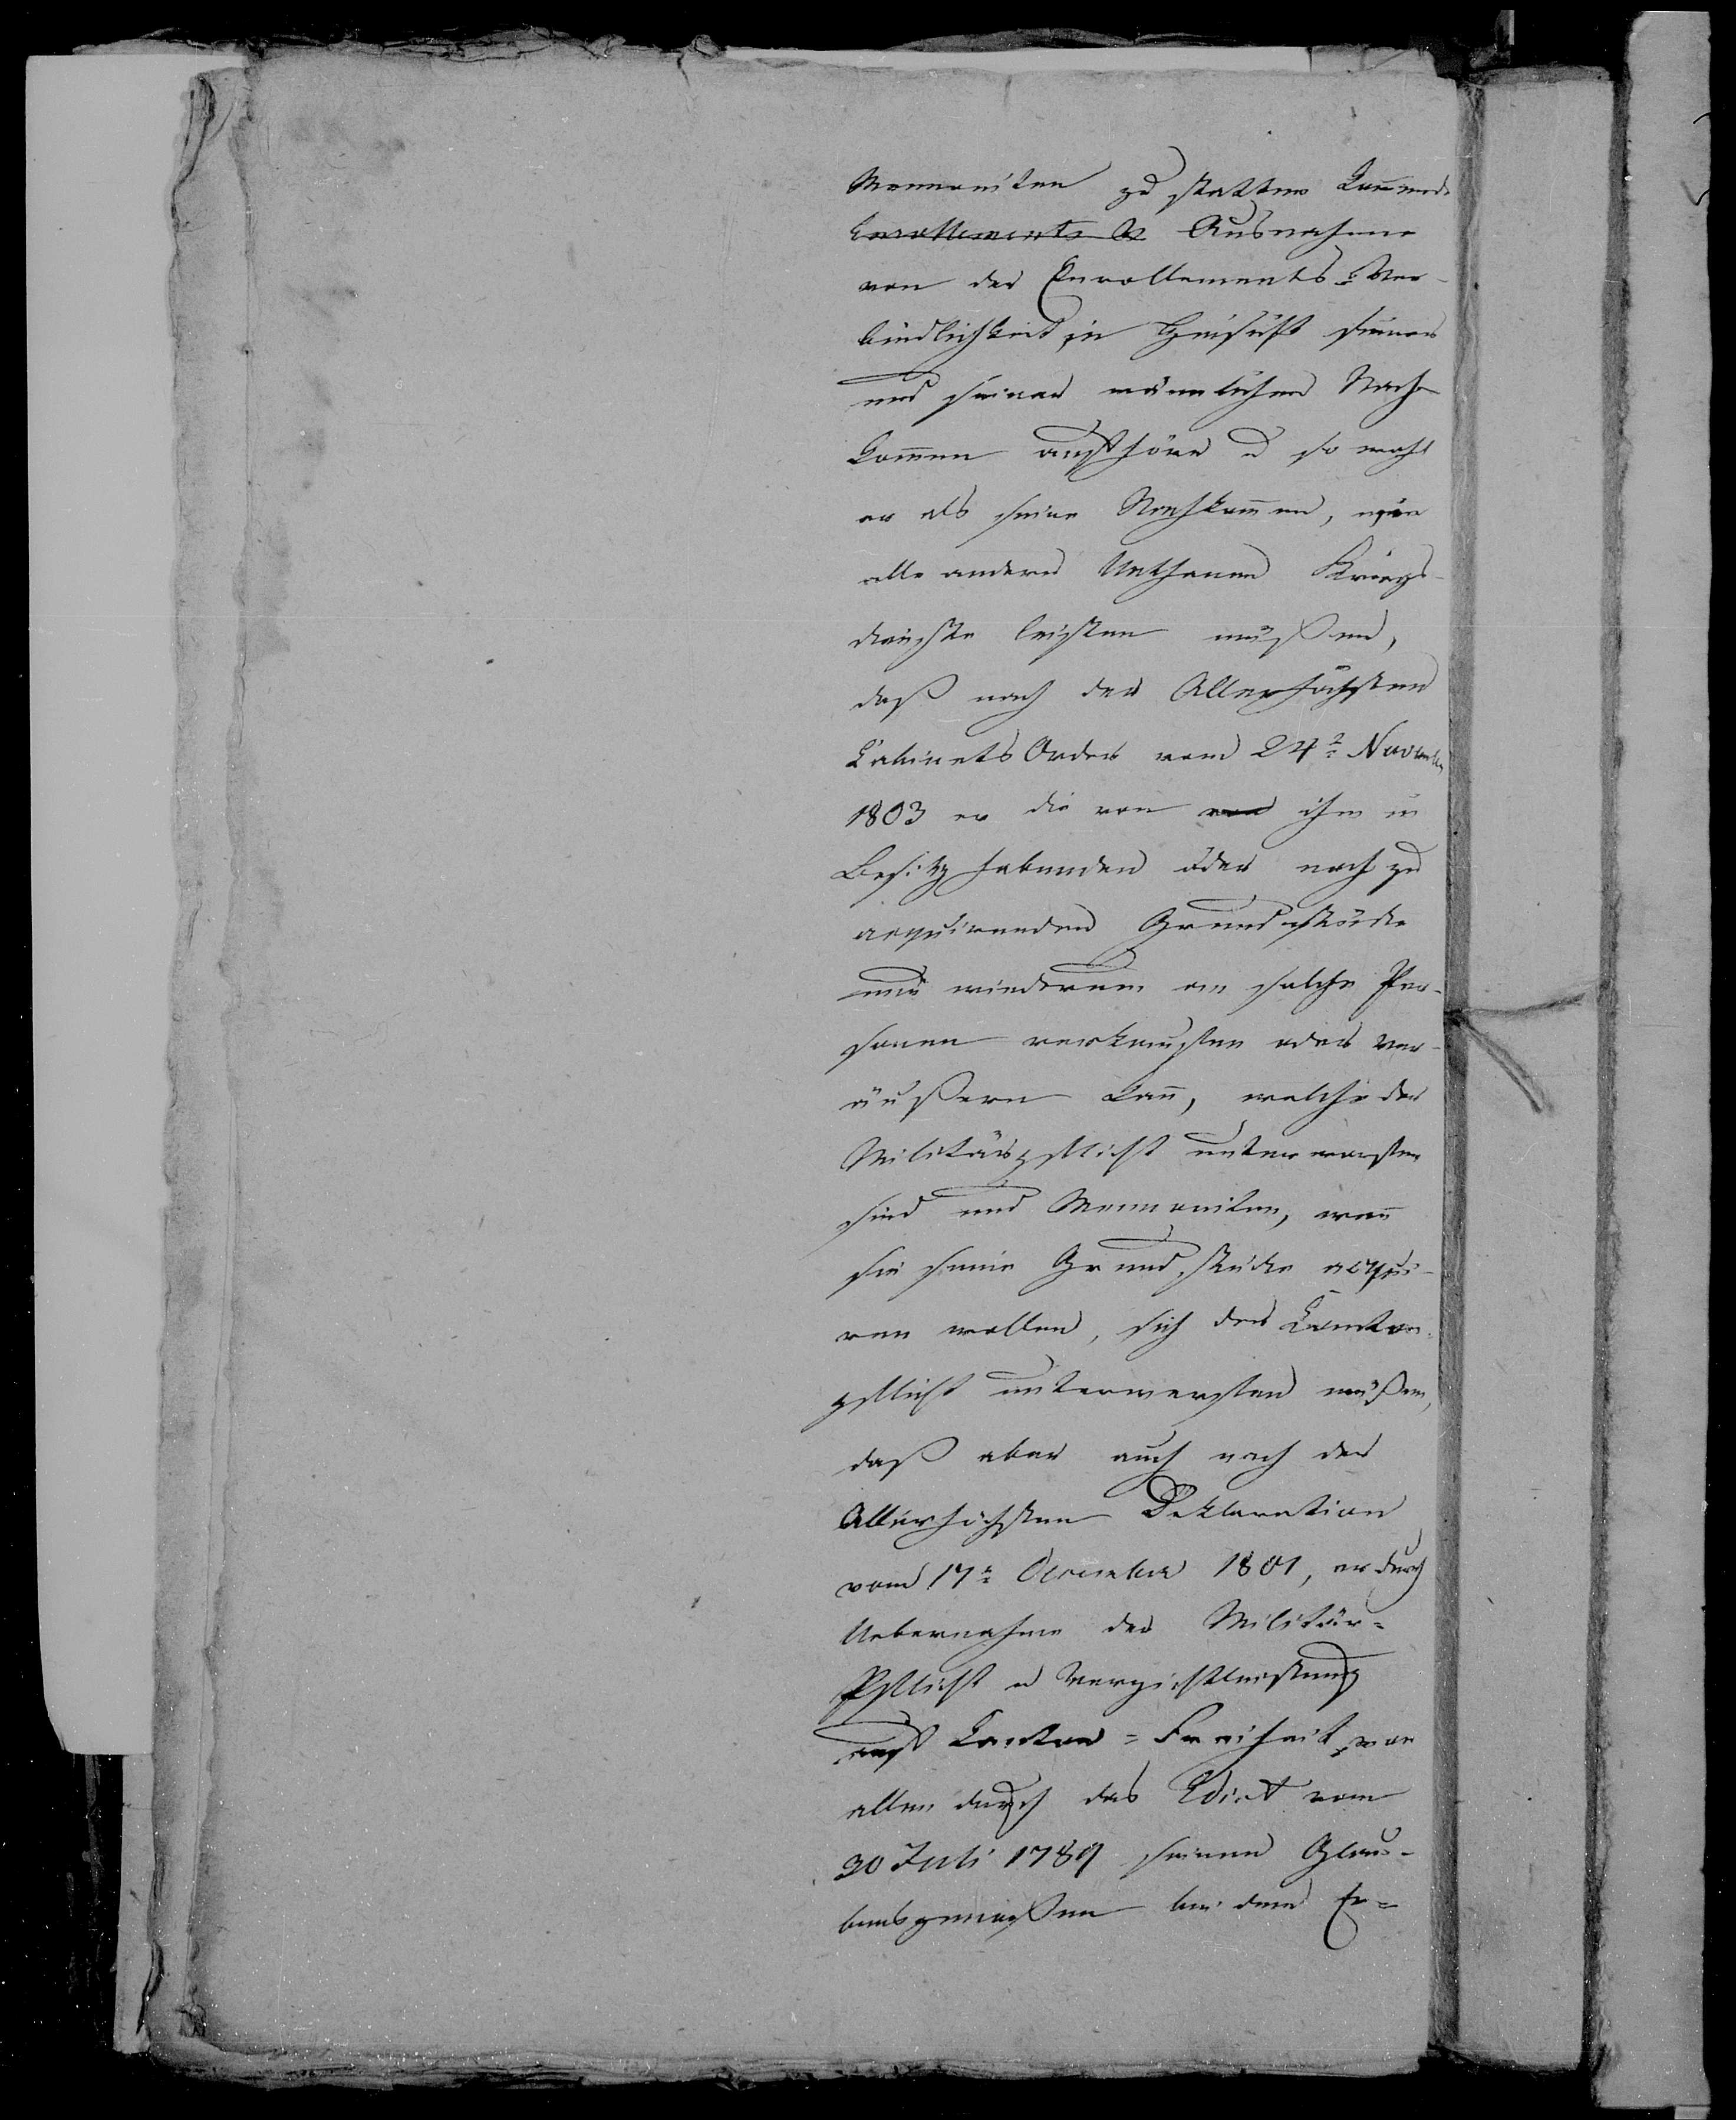 Mennoniten zu statten kommende
Enrollements A Ausnahme
von der Enrollements-Ver-
bindlichkeit in Hinsicht seiner
und seiner männlichen Nach-
kommen aufhöre u so wohl
er als seine Nachkommen, wie
alle andere Unthanen Kriegs-
dienste leisten müßen,
daß nach der Allerhöchsten
Cabinets Order vom 24t November
1803 er die von von ihm in
Besitz habenden oder noch zu
acquirenden Grundstücke
nur wiederum an solche Per-
sonen verkaufen oder ver-
äußern kann, welche der
Militärpflicht unterworfen
sind und Mennoniten, wenn
sie seine Grundstücke acqui-
ren wollen, sich der Canton-
pflicht unterwerfen müßen,
daß aber auch nach der
Allerhöchsten Deklaration
vom 17t December 1801, er durch
Uebernahme der Militär-
Pflicht u Verzichtleistung
auf Canton-Freiheit von
allen durch das Edict vom
30 Juli 1789 seinen Glau-
bensgenoßen bei dem Er-